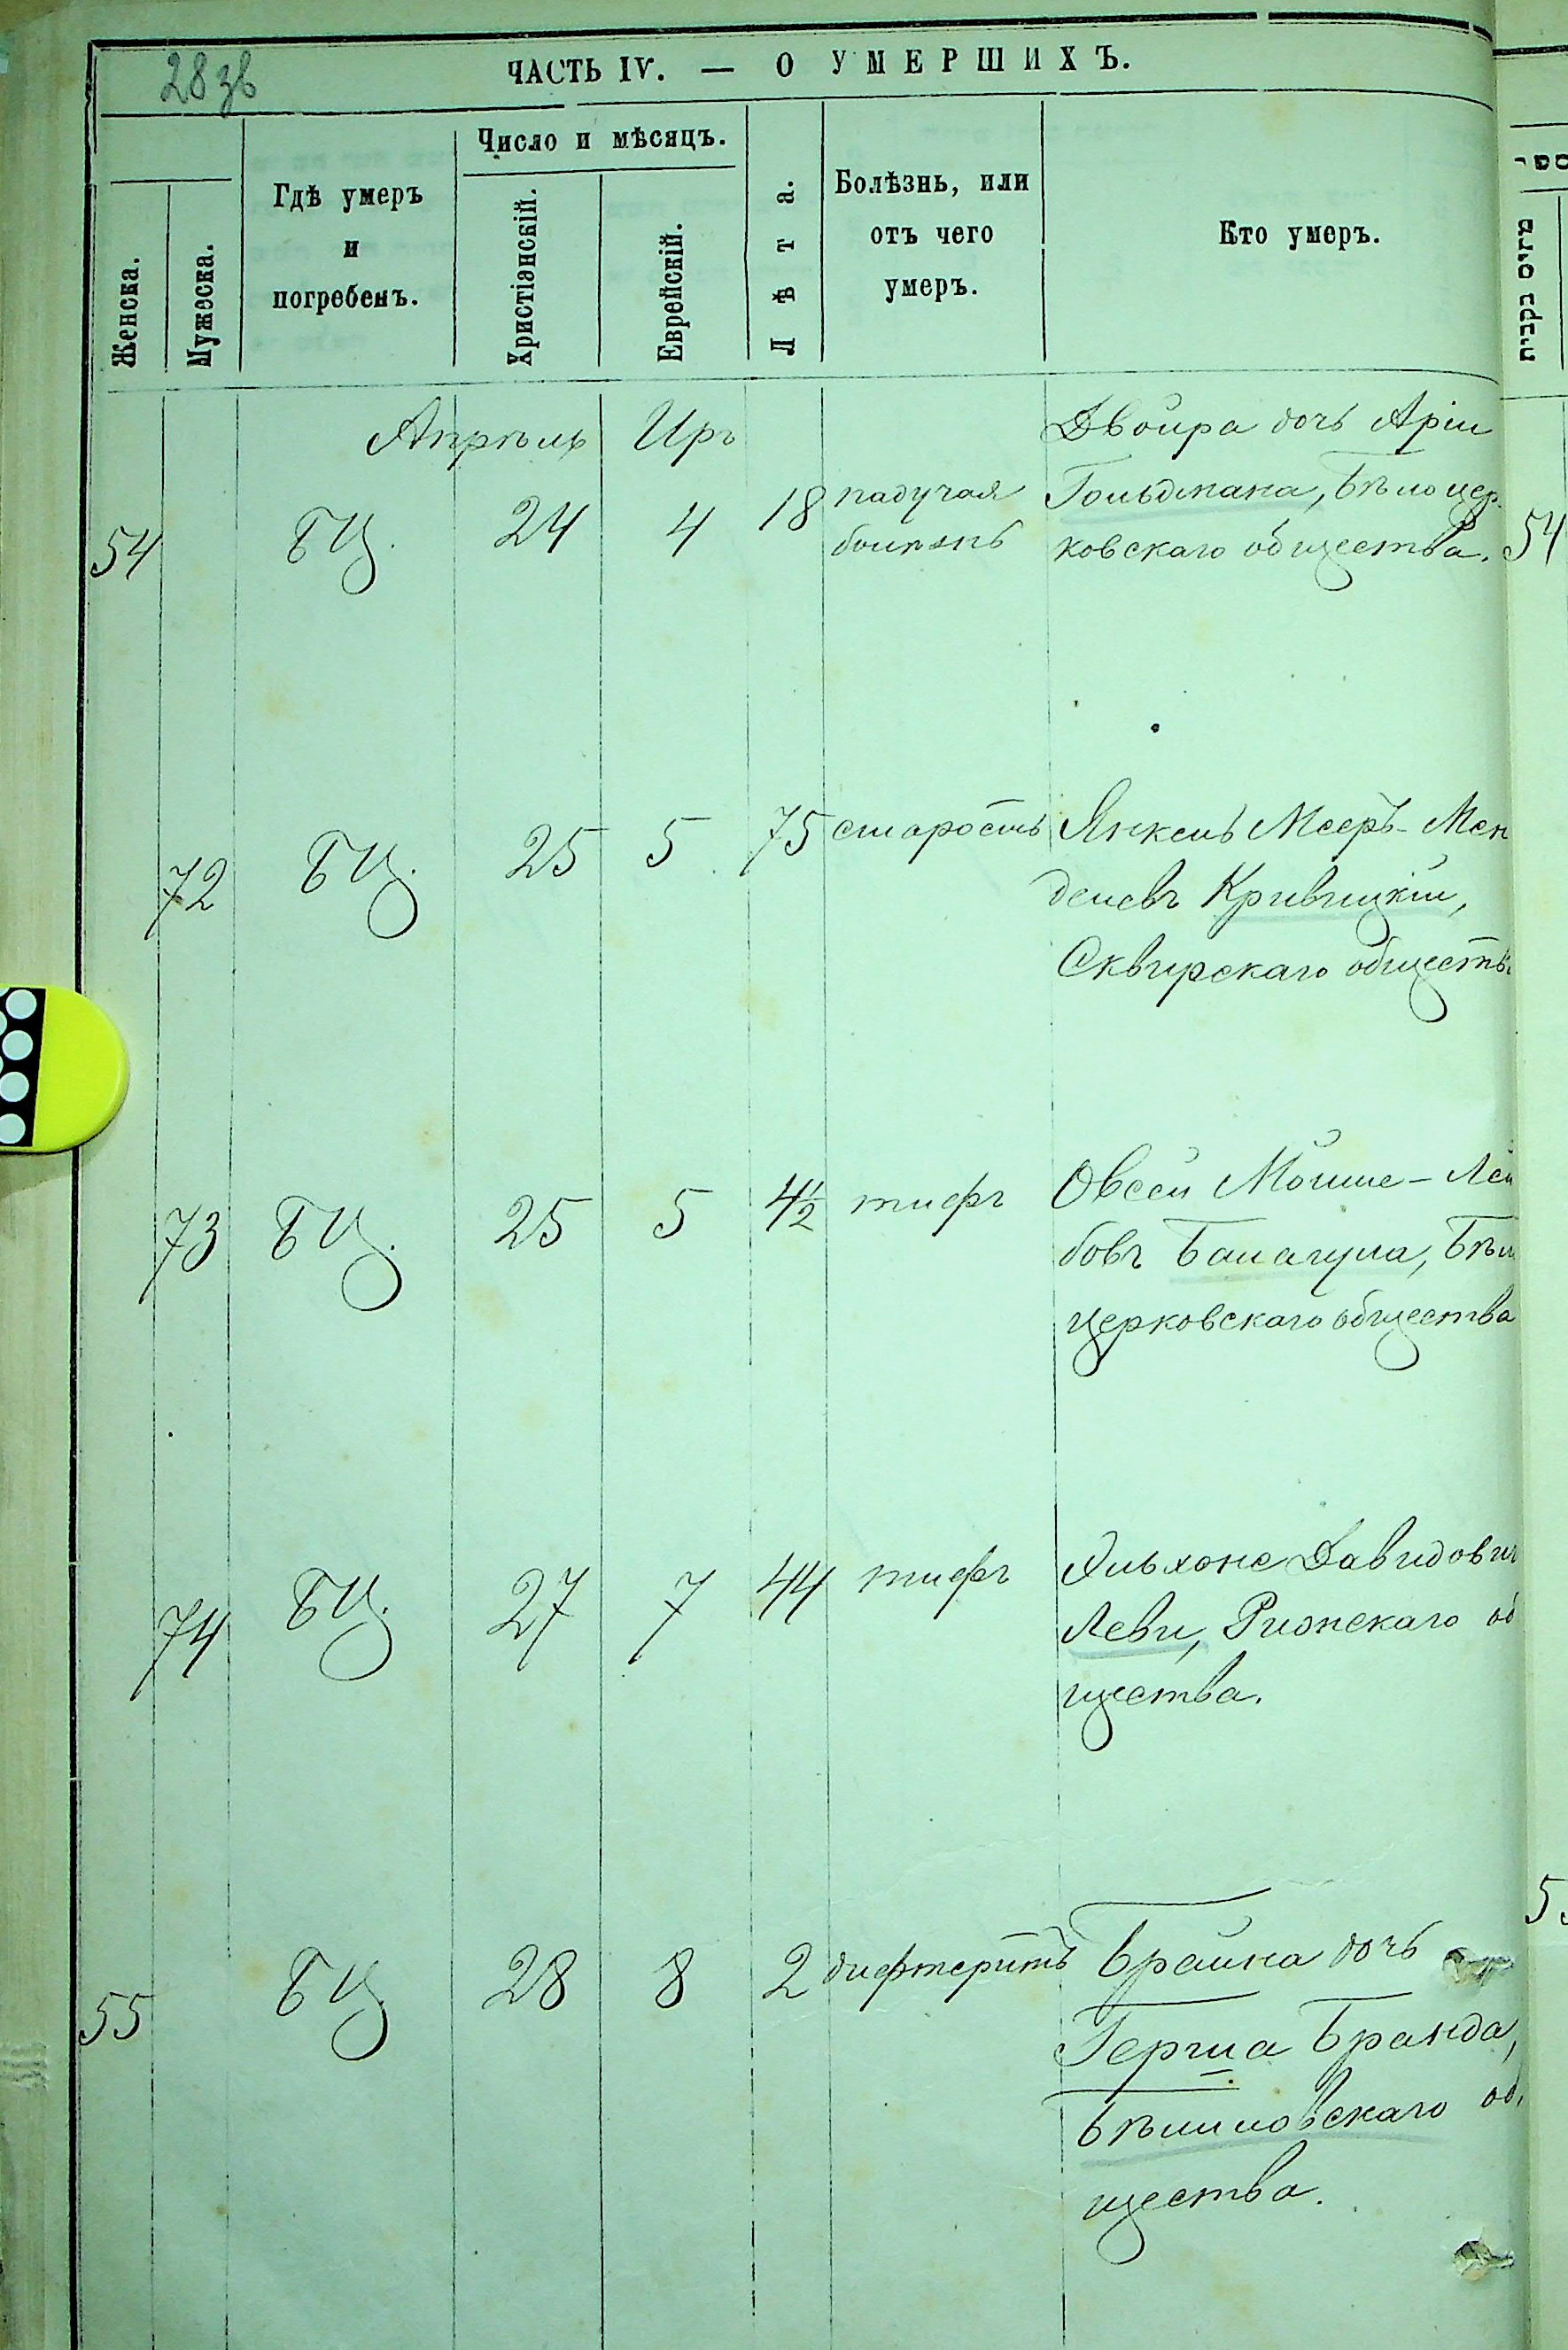 28зв
ЧАСТЬ IV. — О УМЕРШИХЪ.
Женска.
Мужеска.
Гдѣ умеръ
и
погребенъ.
Число и мѣсяцъ.
Христіанскій.
Еврейскій.
Лѣта.
Болѣзнь, или
отъ чего
умеръ.
Кто умеръ.
Апрѣль Иръ
54 БЦ. 24 4 18 падучая
болѣзнь
Двойра дочь Аріи
Гольдмана, Бѣлоцер
ковскаго общества. 54
72 БЦ. 25 5 75 старость Янкель Мееръ-Мен
делевъ Кривицкій,
Сквирскаго обществ
73 БЦ. 25 5 4½ тифъ Овсей Мойше-Лей
бовъ Балагула, Бѣл
церковскаго общества
74 БЦ. 27 7 44 тифъ Эльхоне Давидович
Леви, Рижскаго об
щества.
55 БЦ 28 8 2 дифтеритъ Брайна дочь
Герша Бранда,
Бѣлиловскаго об
щества.